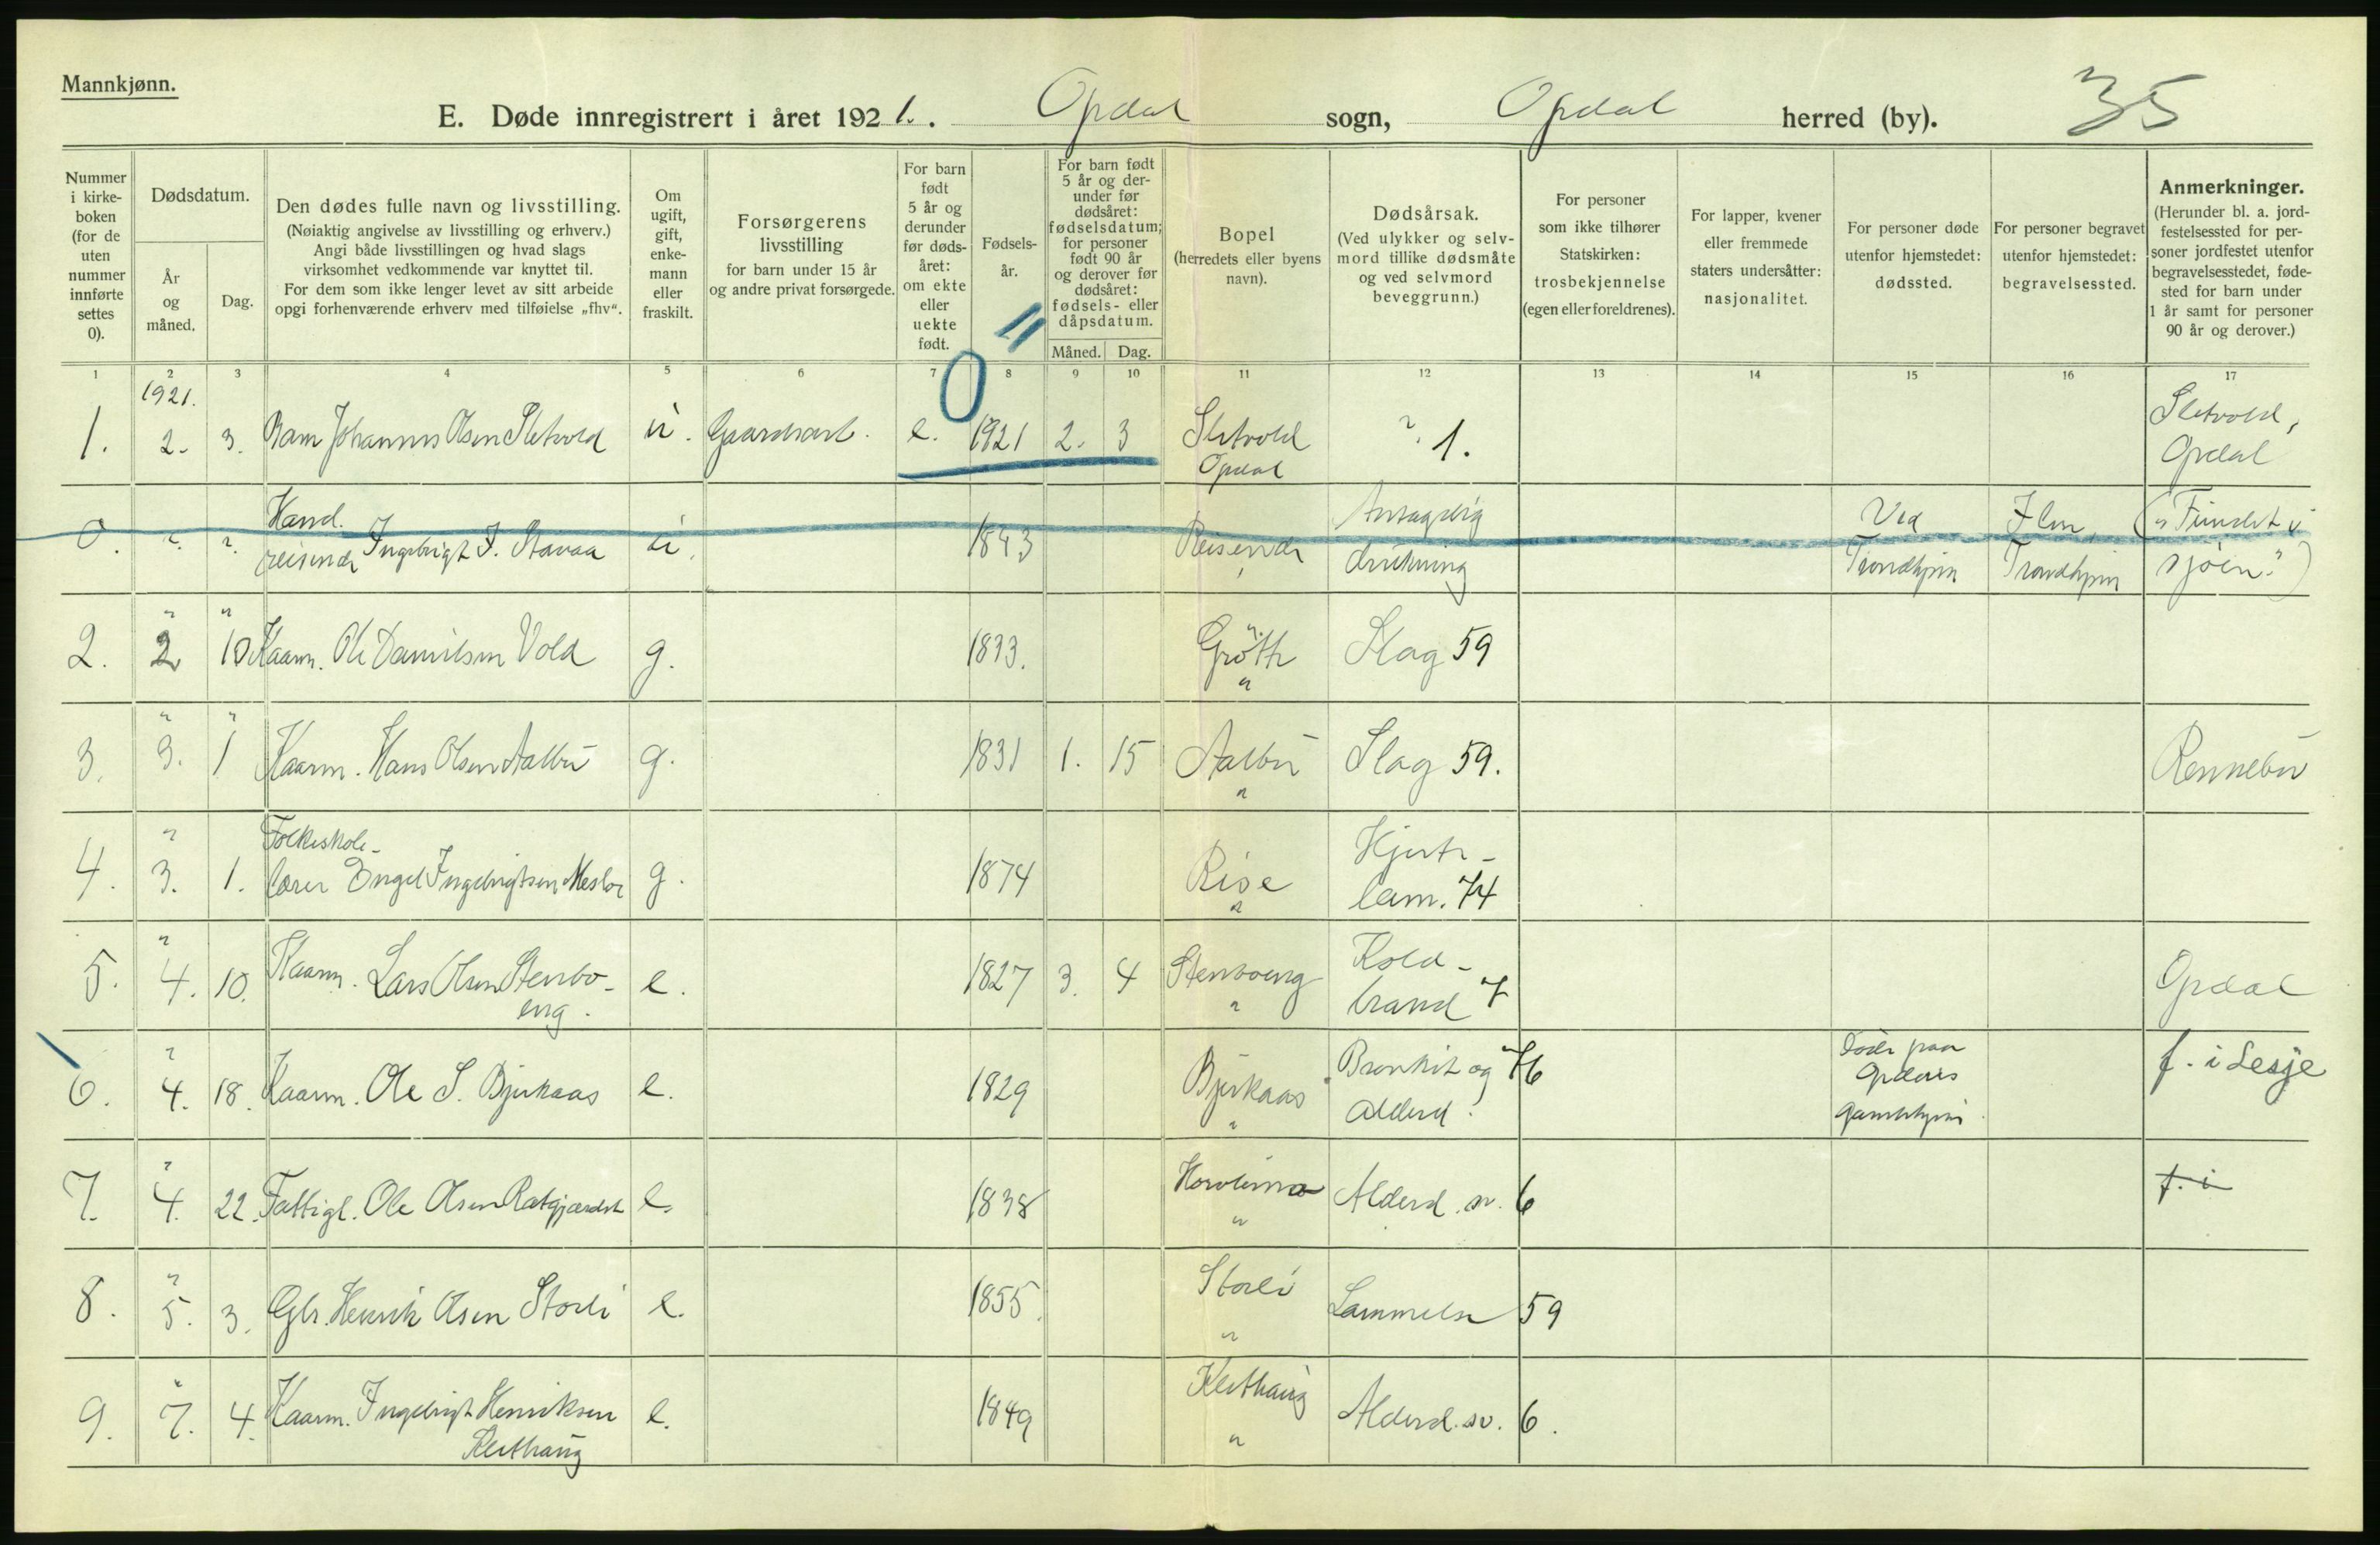 Mannkjønn.
E. Døde innregistrert i året 1921. Opdal sogn, Opdal herred (by). 35
Nummer
i kirke-
boken
(for de
uten
nummer
innførte
settes
0).
Dødsdatum.
År
og
måned.
Dag.
Den dødes fulle navn og livsstilling.
(Nøiaktig angivelse av livsstilling og erhverv.)
Angi både livsstillingen og hvad slags
virksomhet vedkommende var knyttet til.
For dem som ikke lenger levet av sitt arbeide
opgi forhenværende erhverv med tilføielse „fhv“.
Om
ugift,
gift,
enke-
mann
eller
fraskilt.
Forsørgerens
livsstilling
for barn under 15 år
og andre privat forsørgede.
For barn
født
5 år og
derunder
før døds-
året:
om ekte
eller
uekte
født.
Fødsels-
år.
For barn født
5 år og der-
under før
dødsåret:
fødselsdatum;
for personer
født 90 år
og derover før
dødsåret:
fødsels- eller
dåpsdatum.
Måned. Dag.
Bopel
(herredets eller byens
navn).
Dødsårsak.
(Ved ulykker og selv-
mord tillike dødsmåte
og ved selvmord
beveggrunn.)
For personer
som ikke tilhører
Statskirken:
trosbekjennelse
(egen eller foreldrenes).
For lapper, kvener
eller fremmede
staters undersåtter:
nasjonalitet.
For personer døde
utenfor hjemstedet:
dødssted.
For personer begravet
utenfor hjemstedet:
begravelsessted.
Anmerkninger.
(Herunder bl. a. jord-
festelsessted for per-
soner jordfestet utenfor
begravelsesstedet, føde-
sted for barn under
1 år samt for personer
90 år og derover.)
1 2 3 4 5 6 7 8 9 10 11 12 13 14 15 16 17
0
1921.
1. 2. 3. Barn Johannes Olsen Sletvold u. Gaardsarb. e. 1921 2. 3 Sletvold ?. 1. Sletvold,
Opdal Opdal
Hand. Antagelig Ved Ilen, („Fundet i
0. ?. ?. reisende Ingebrigt I. Stavaa u. 1843 Reisende drukning Trondhjem Trondhjem sjøen“)
" "
2. 2 10 Kaarm. Ole Danielsen Vold g. 1833. Grøtte Slag 59
"
" "
3. 3. 1 Kaarm. Hans Olsen Aalbu g. 1831 1. 15 Aalbu Slag 59. Rennebu
"
" Folkeskole- Hjerte-
4. 3. 1. lærer Engel Ingebrigtsen Mesloe g. 1874 Rise lam. 74
"
" Kold-
5. 4. 10. Kaarm. Lars Olsen Stenbo- e. 1827 3. 4 Stenboeng brand 7 Opdal
eng. "
" Bronkit og 76 Døde paa f. i Lesje
6. 4. 18. Kaarm. Ole S. Bjerkaas e. 1829 Bjerkaas Alderd. Opdals
" gamlehjem
"
7. 4. 22. Fattigl. Ole Olsen e. 1838 Alderd. sv. 6 f. i
"
" Storli
8. 5. 3. Gbr. Henrik Olsen Storli e. 1855. Lammelse 59
"
" Klethaug
9. 7. 4. Kaarm. Ingebrigt Henriksen e. 1849 Alderd. sv. 6.
Klethaug "